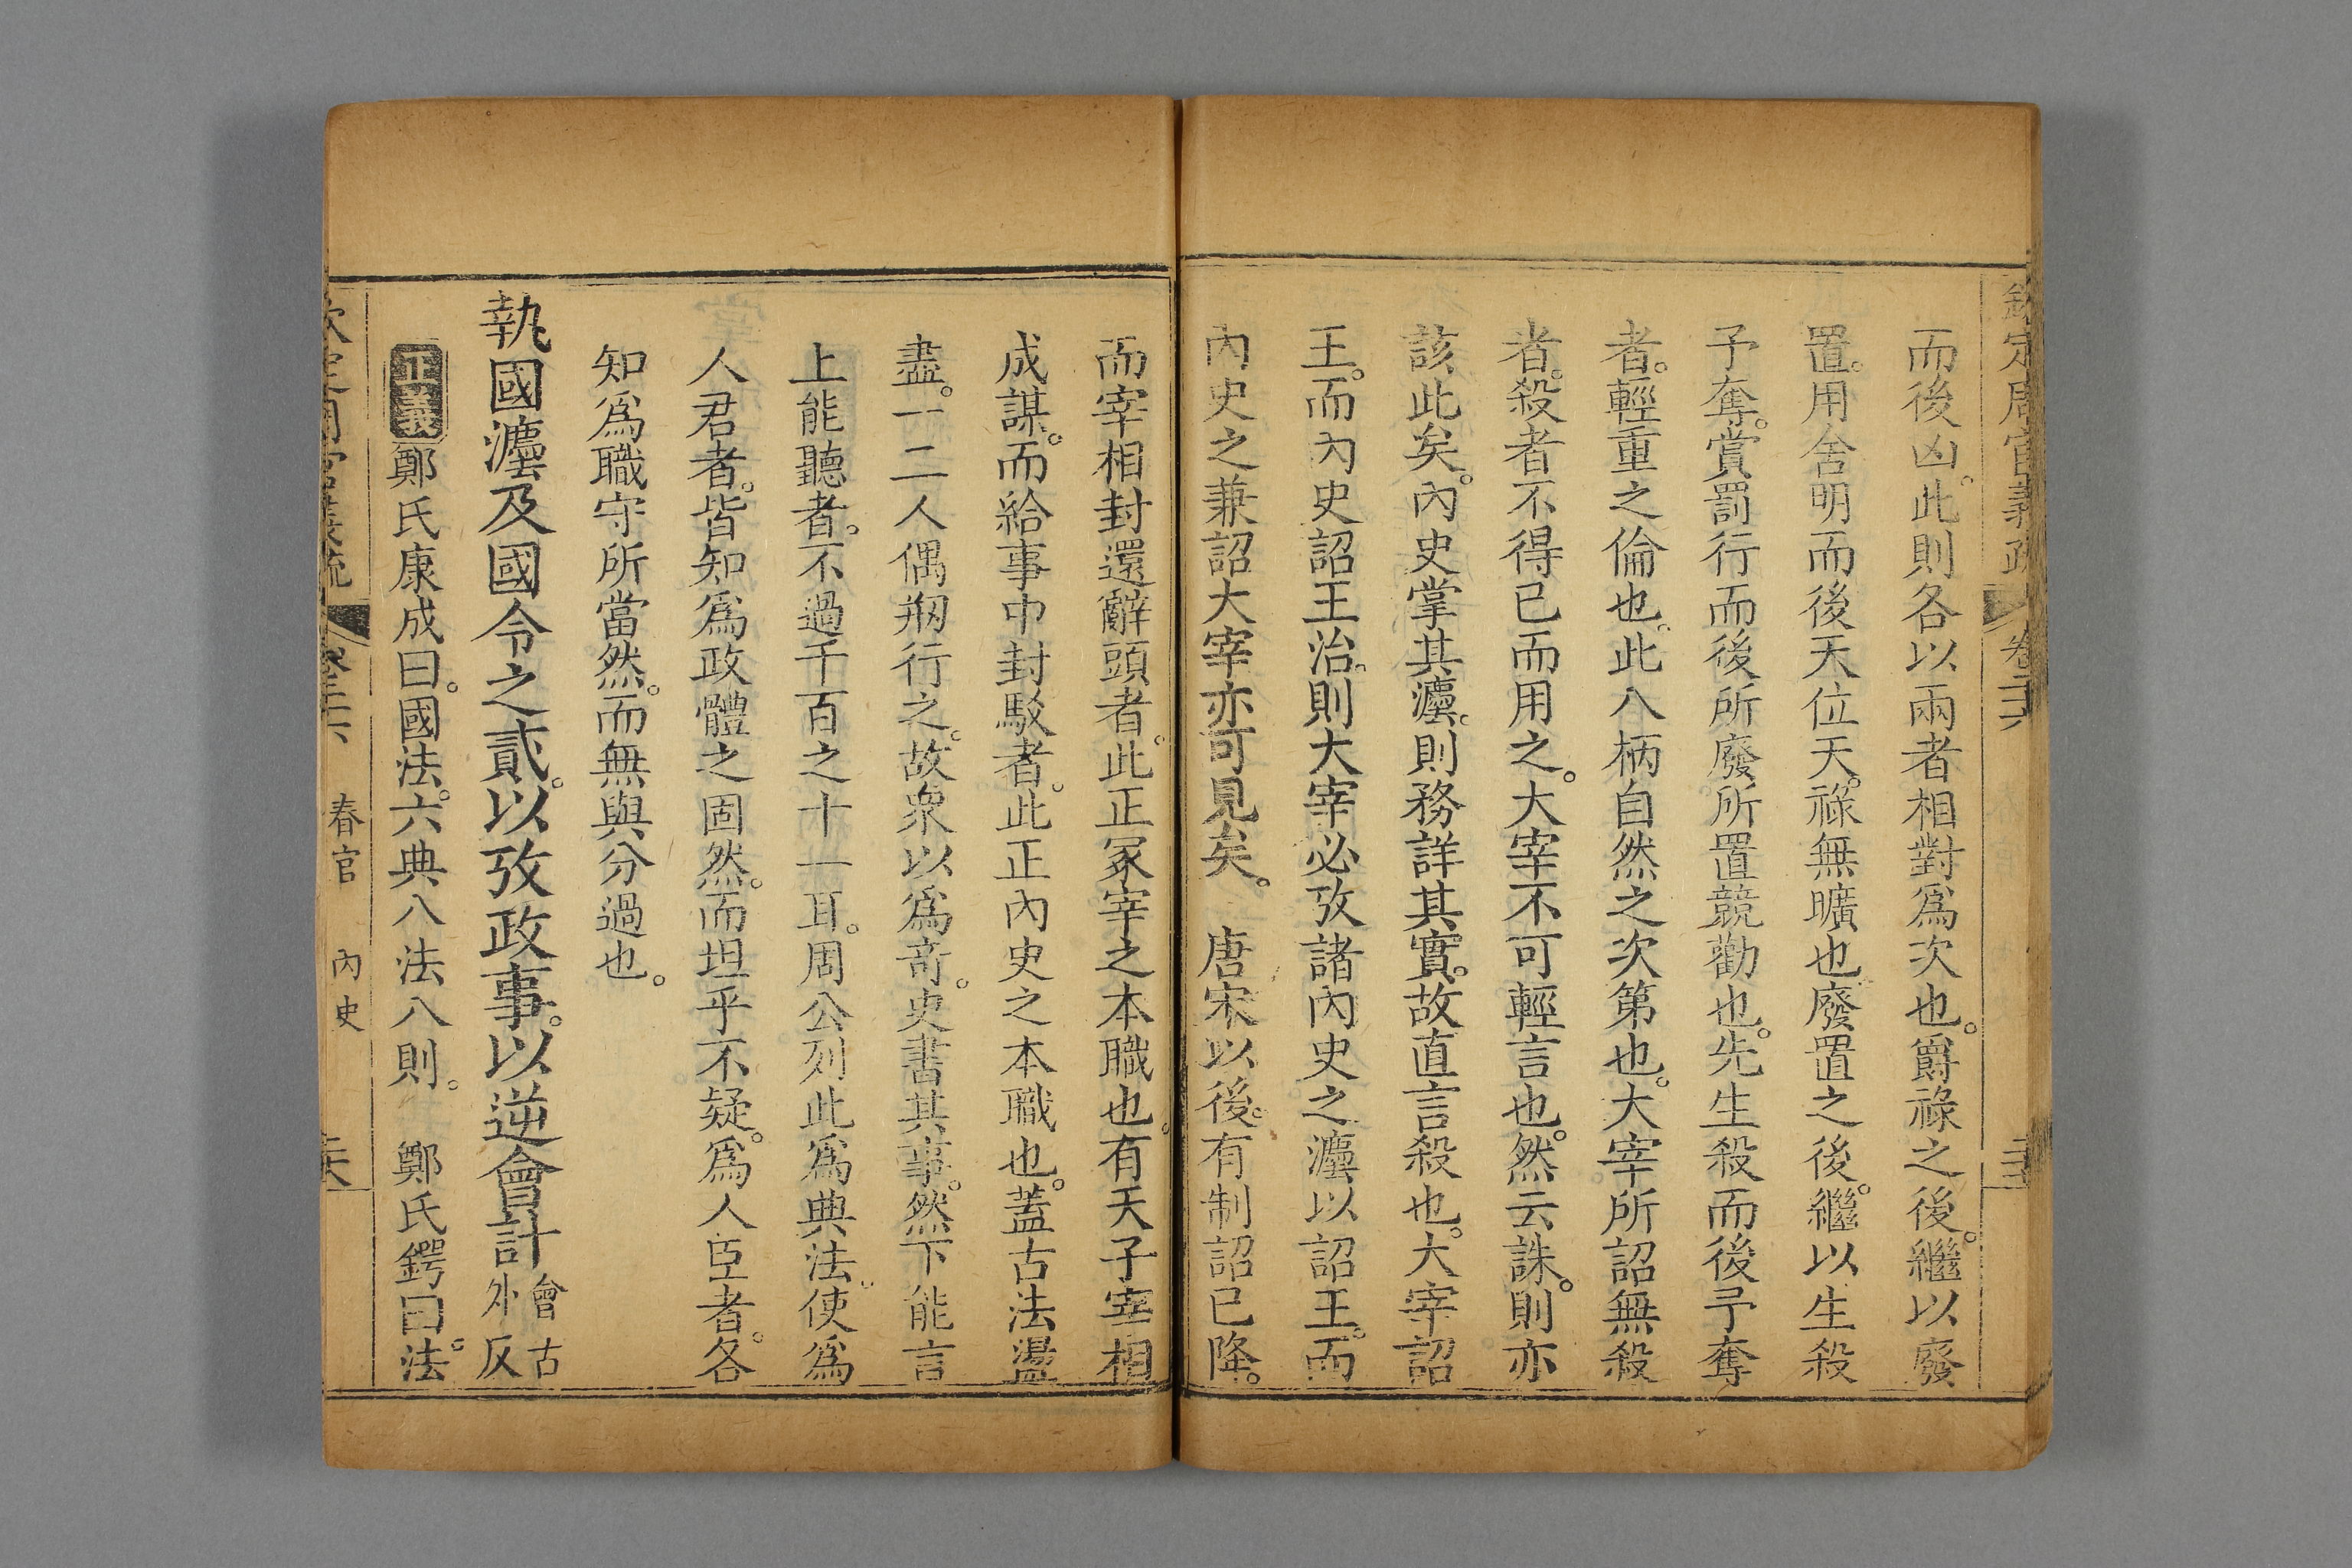 欽定周官義疏 卷二十六
而後凶。此則各以兩者相對爲次也。爵祿之後。繼以廢
置。用舍明而後天位天。祿無曠也廢置之後。繼以生殺
予奪。賞罰行而後所廢所置競勸也。先生殺而後予奪
者。輕重之倫也。此八柄自然之次第也。大宰所詔無殺
者。殺者不得已而用之。大宰不可輕言也。然云誅。則亦
該此矣。內史掌其灋。則務詳其實。故直言殺也。大宰詔
王。而內史詔王治。則大宰必攷諸內史之灋以詔王。而
內史之兼詔大宰亦可見矣。 唐宋以後。有制詔已降。
而宰相封還辭頭者。此正冢宰之本職也。有天子宰相
成謀。而給事中封駁者。此正內史之本職也。蓋古法盪
盡。一二人偶剏行之。故衆以爲奇。史書其事。然下能言
上能聽者。不過千百之十一耳。周公列此爲典法。使爲
人君者。皆知爲政體之固然。而坦乎不疑。爲人臣者。各
知爲職守所當然。而無與分過也。
執國灋及國令之貳。以攷政事。以逆會計 會古外反
正義 鄭氏康成曰。國法。六典八法八則。 鄭氏鍔曰。法
欽定周官義疏 卷二十六 春官 內史